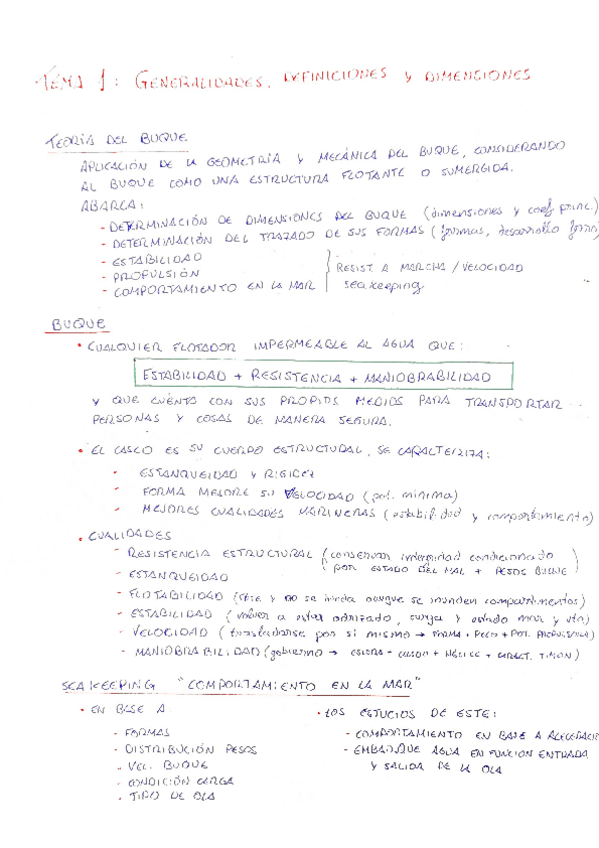 TEMA 1: GENERALIDADES, DEFINICIONES Y DIMENSIONES
TEORÍA DEL BUQUE
APLICACIÓN DE LA GEOMETRÍA Y MECÁNICA DEL BUQUE, CONSIDERANDO
AL BUQUE COMO UNA ESTRUCTURA FLOTANTE O SUMERGIDA.
ABARCA:
- DETERMINACIÓN DE DIMENSIONES DEL BUQUE (dimensiones y coef. princ.)
- DETERMINACIÓN DEL TRAZADO DE SUS FORMAS (formas, desarrollo
- ESTABILIDAD
- PROPULSIÓN } RESIST. A MARCHA / VELOCIDAD
- COMPORTAMIENTO EN LA MAR } seakeeping
BUQUE
• CUALQUIER FLOTADOR IMPERMEABLE AL AGUA QUE:
ESTABILIDAD + RESISTENCIA + MANIOBRABILIDAD
Y QUE CUENTA CON SUS PROPIOS MEDIOS PARA TRANSPORTAR
PERSONAS Y COSAS DE MANERA SEGURA.
• EL CASCO ES SU CUERPO ESTRUCTURAL, SE CARACTERIZA:
• ESTANQUEIDAD Y RIGIDEZ
- FORMA MEJORE SU VELOCIDAD (pot. mínima)
- MEJORES CUALIDADES MARINERAS (estabilidad y comportamiento)
• CUALIDADES
- RESISTENCIA ESTRUCTURAL (conservar integridad condicionado
por ESTADO DEL MAR + PESOS BUQUE)
- ESTANQUEIDAD
- FLOTABILIDAD (flote y no se hunda aunque se inunden compartimentos)
- ESTABILIDAD (volver a estar adrizado, carga y estado mar y vto)
- VELOCIDAD (trasladarse por si mismo → FORMA + PESO + POT. PROPULSORA)
- MANIOBRABILIDAD (gobierno → ESLORA - CASCO + HÉLICE + CARACT. TIMÓN)
SEAKEEPING "COMPORTAMIENTO EN LA MAR"
• EN BASE A
- FORMAS
- DISTRIBUCIÓN PESOS
- VEL. BUQUE
- CONDICIÓN CARGA
- TIPO DE OLA
• LOS ESTUDIOS DE ESTE:
- COMPORTAMIENTO EN BASE A
- EMBARQUE AGUA EN FUNCIÓN ENTRADA
Y SALIDA DE LA OLA